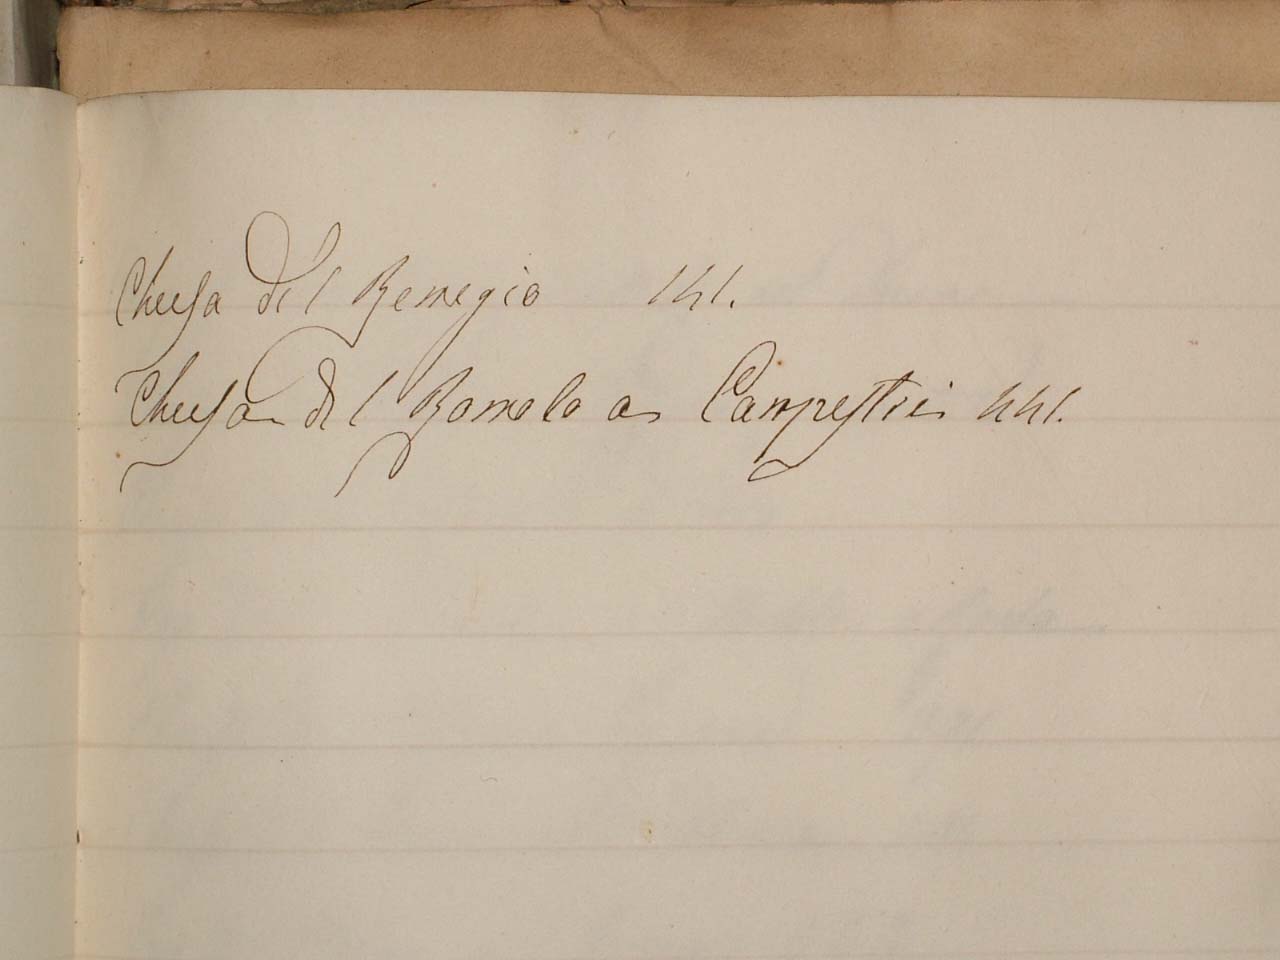 Chiesa di S. Remegio 141.
Chiesa di S. Romolo a Campestri 441.